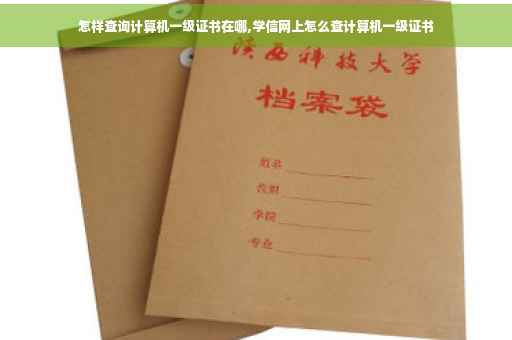 怎样查询计算机一级证书在哪,学信网上怎么查计算机一级证书
陕西科技大学
档案袋
姓名
学院
专业